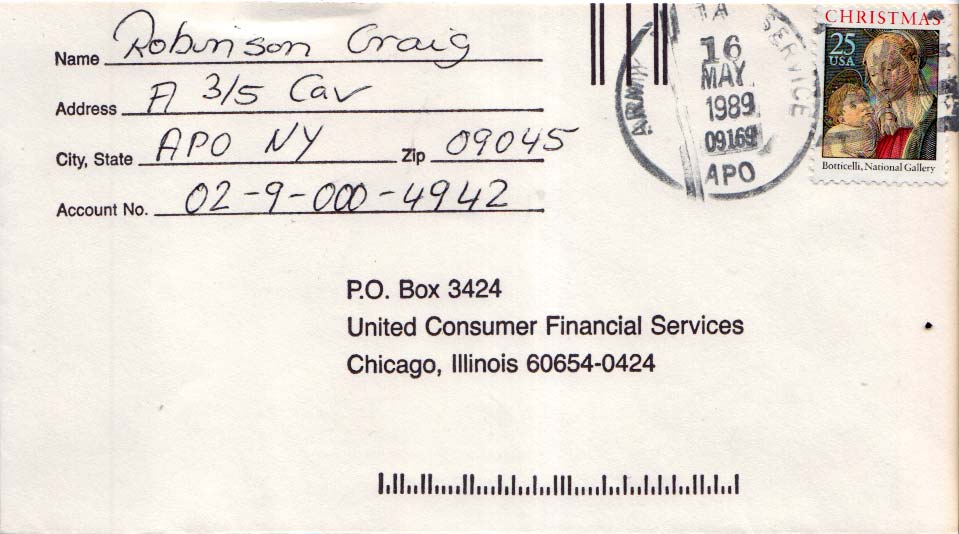 Name Robinson Craig
Address A 3/5 Cav
City, State APO NY Zip 09045
Account No. 02-9-000-4942
SERVICE
16
MAY
1989
09169
APO
CHRISTMAS
25
USA
Botticelli, National Gallery
P.O. Box 3424
United Consumer Financial Services
Chicago, Illinois 60654-0424